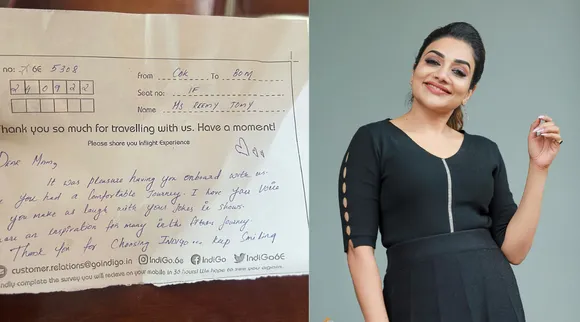 no: 6E 5308
From COK To BOM
2 4 0 9 2 2
Seat no: 1F
Name Ms
Thank you so much for travelling with us. Have a moment!
Please share you inflight Experience
Mam,
It was pleasure having you onboard with us
you had a comfortable Journey. I have you
you make us laugh with your Jokes in shows.
are an inspiration for many in the future Journey
Thank you for Choosing IndiGo... keep Smiling
customer.relations@goindigo.in IndiGo.6e IndiGo IndiGo6E
kindly complete the survey you will recieve on your mobile in We hope to see you again.